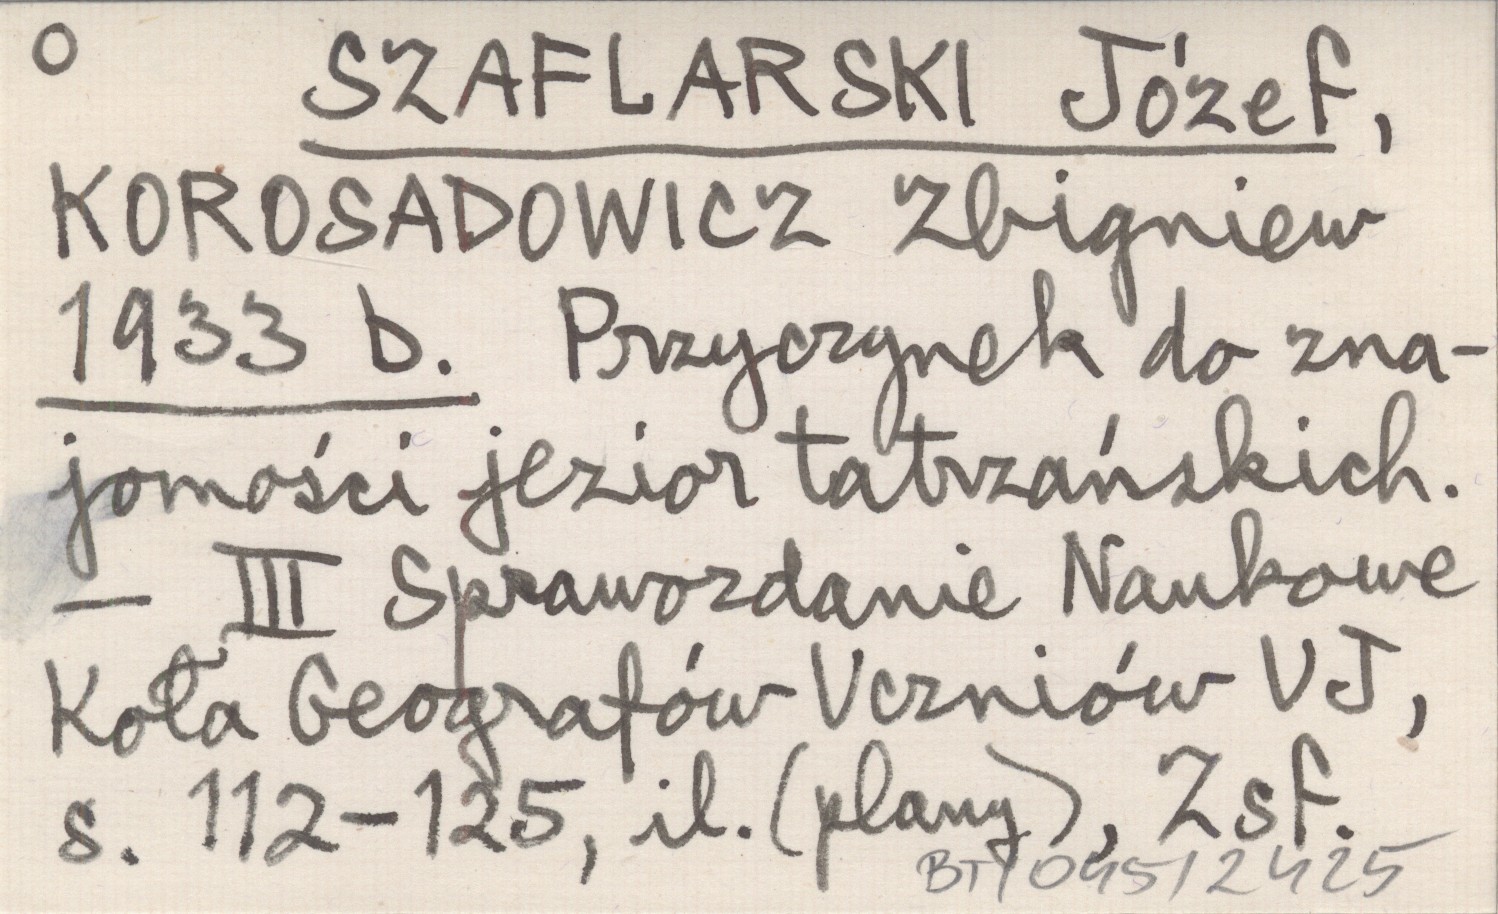 O SZAFLARSKI Józef,
KOROSADOWICZ Zbigniew
1933 b. Przyczynek do zna-
jomości jezior tatrzańskich.
— III Sprawozdanie Naukowe
Koła Geografów Uczniów UJ,
s. 112-125, il. (plany), Zsf.
BT/045/2425